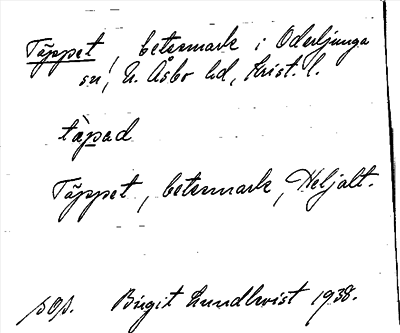 Täppet, betesmark i Oderljunga
sn, N. Åsbo hd, Krist. l.
täpad
Täppet, betesmark, Heljalt.
pop. Birgit Lundkvist 1938.